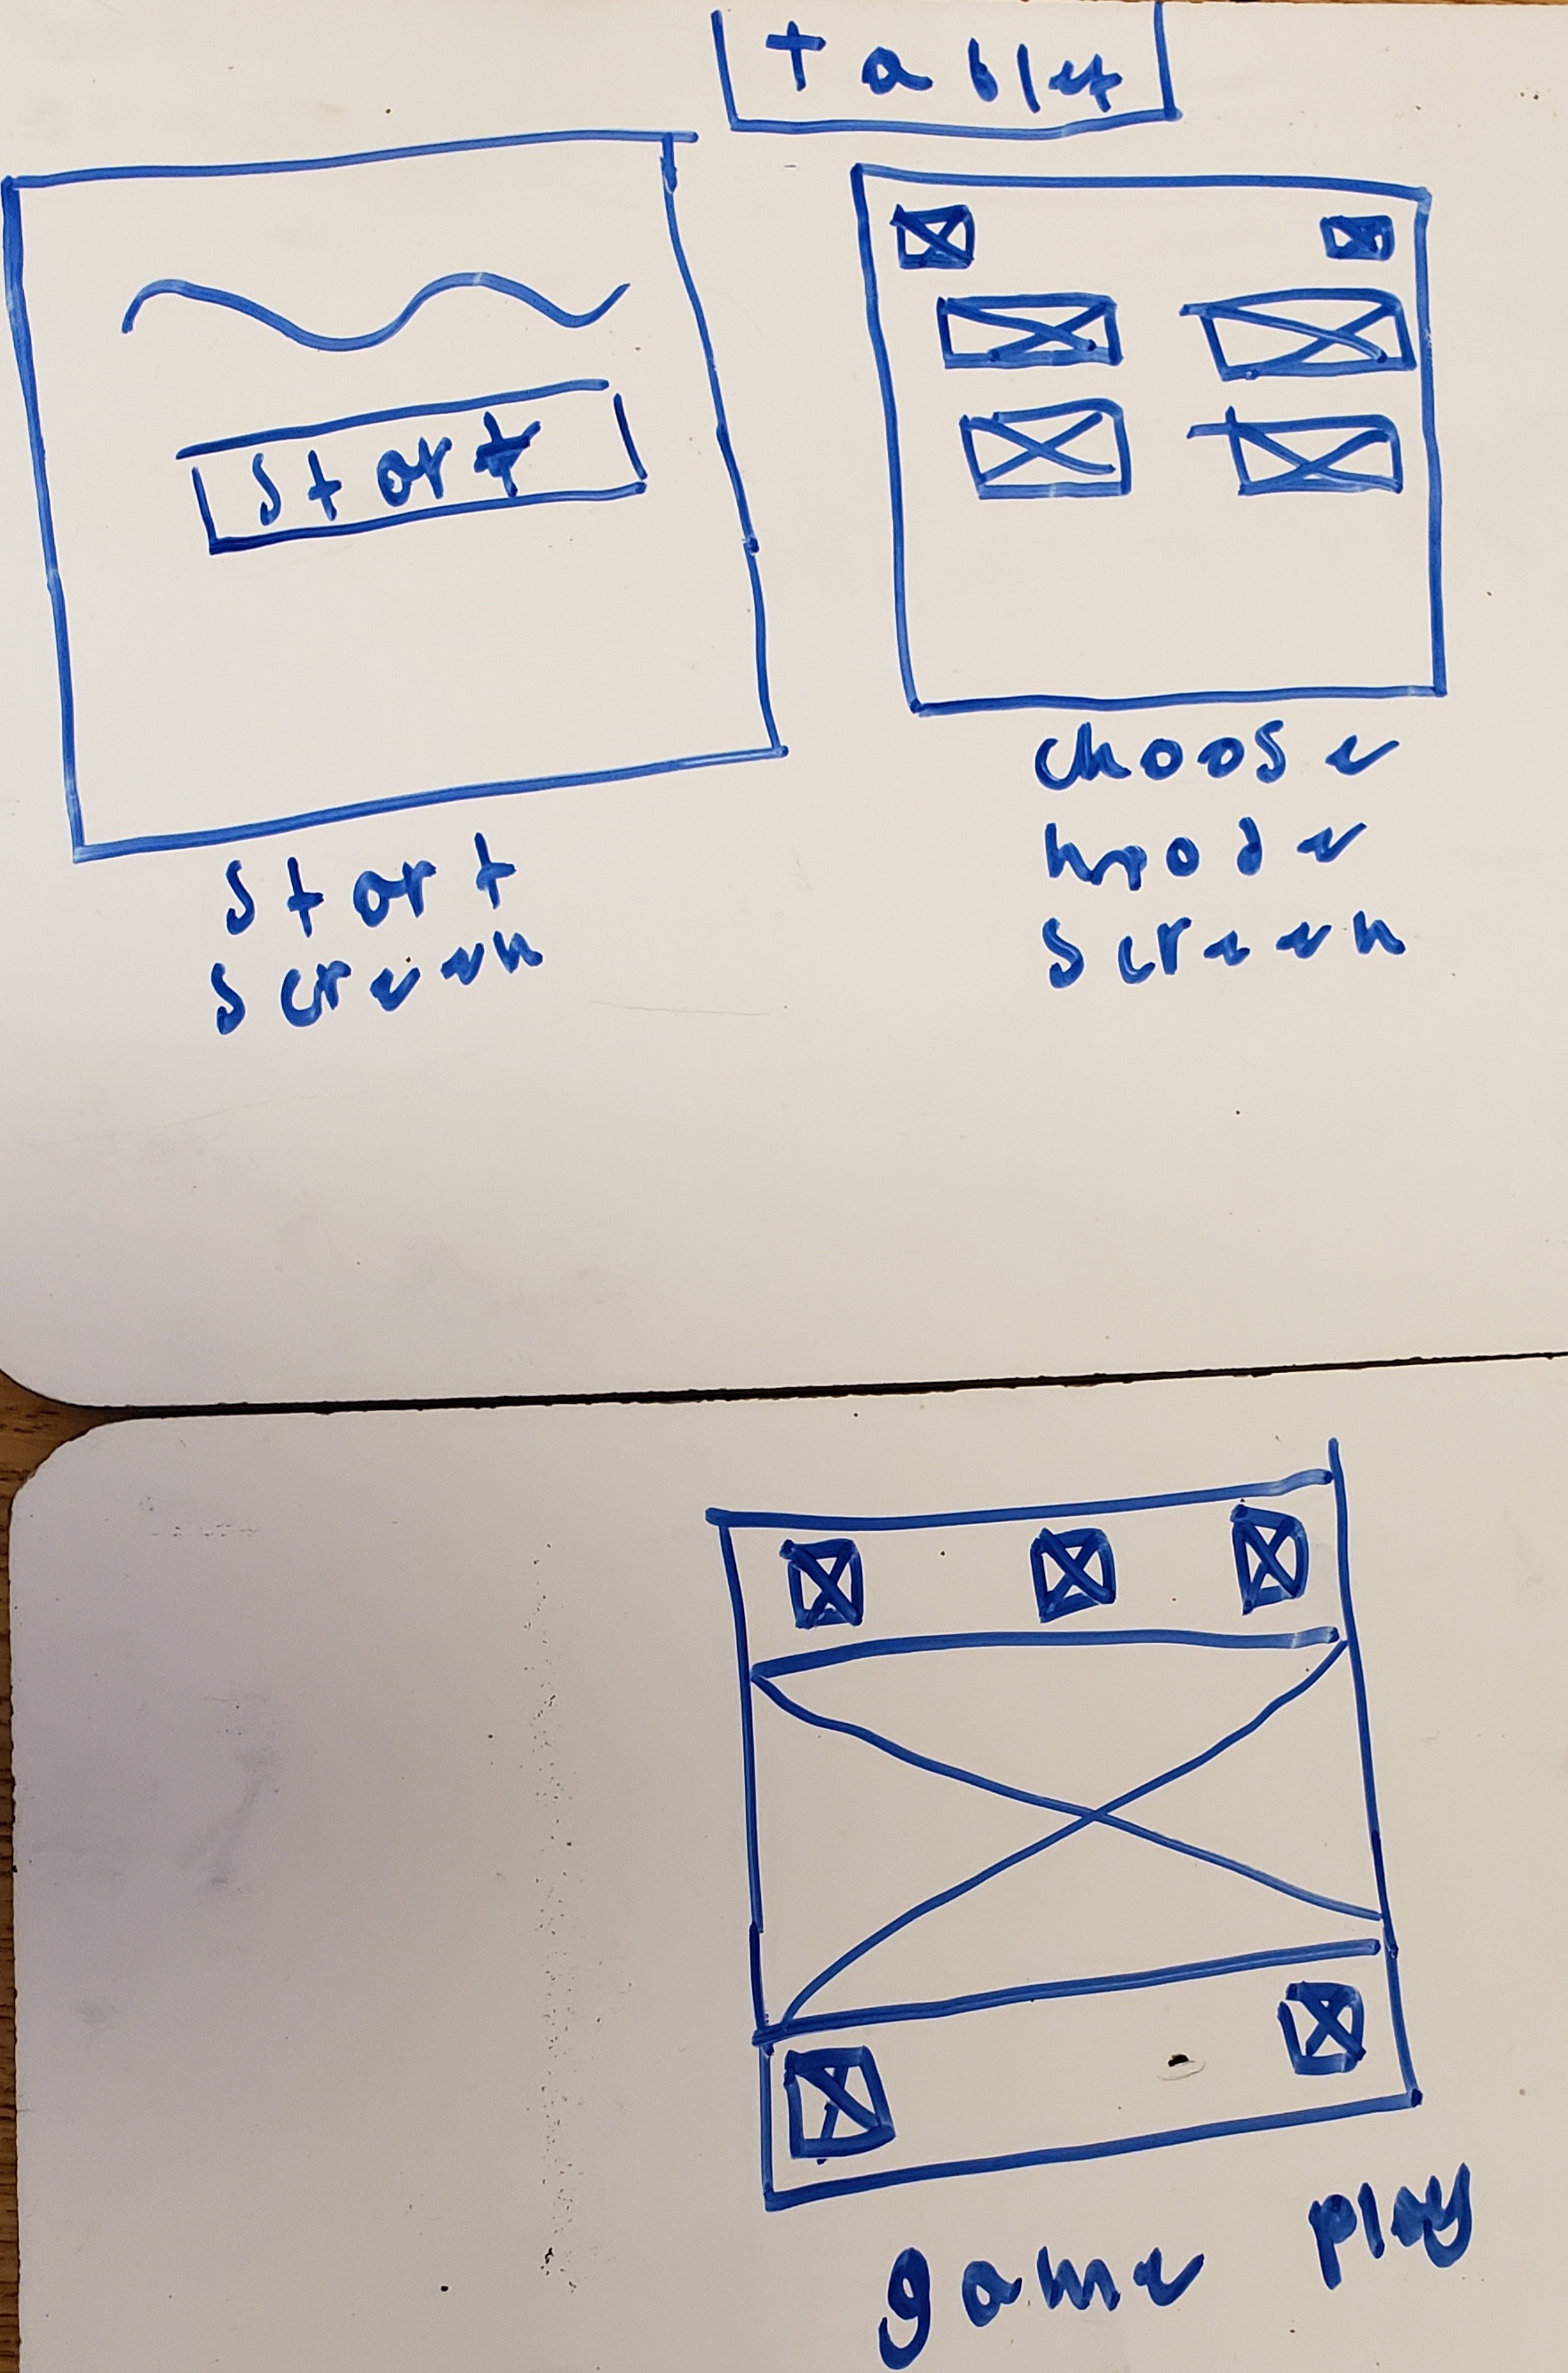 tablet
start
start
screen
choose
mode
screen
game play